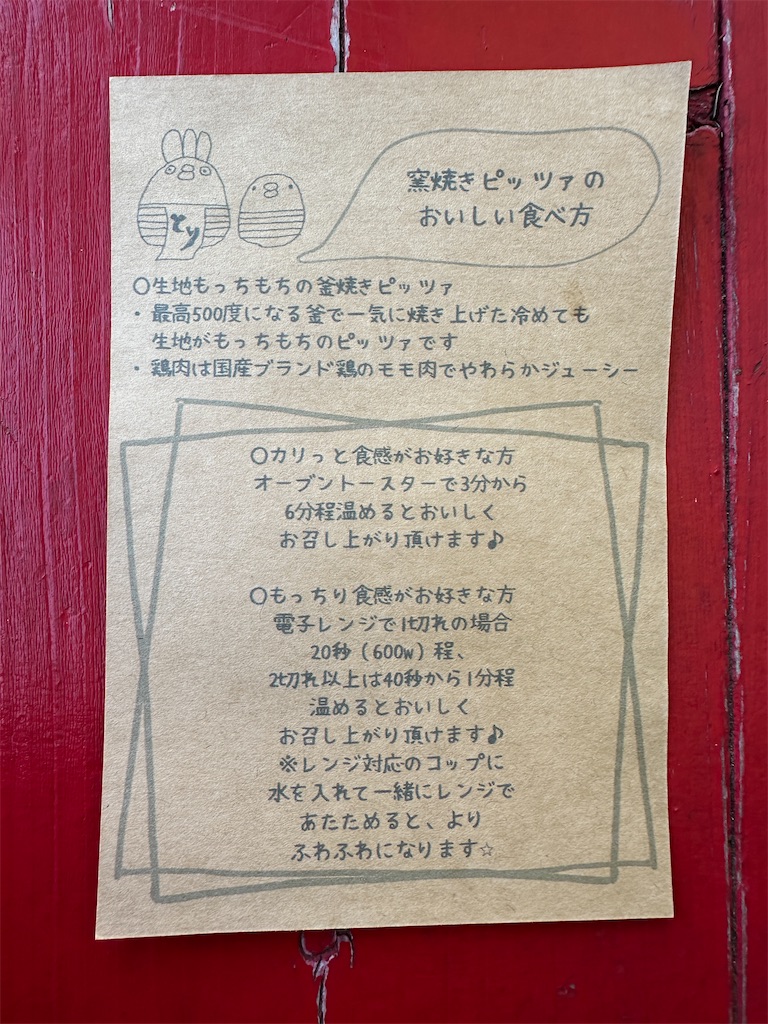 とり
窯焼きピッツァの
おいしい食べ方
〇生地もっちもちの釜焼きピッツァ
・最高500度になる釜で一気に焼き上げた冷めても
生地がもっちもちのピッツァです
・鶏肉は国産ブランド鶏のモモ肉でやわらかジューシー
〇カリっと食感がお好きな方
オーブントースターで3分から
6分程温めるとおいしく
お召し上がり頂けます♪
〇もっちり食感がお好きな方
電子レンジで1切れの場合
20秒（600w）程、
2切れ以上は40秒から1分程
温めるとおいしく
お召し上がり頂けます♪
※レンジ対応のコップに
水を入れて一緒にレンジで
あたためると、より
ふわふわになります☆